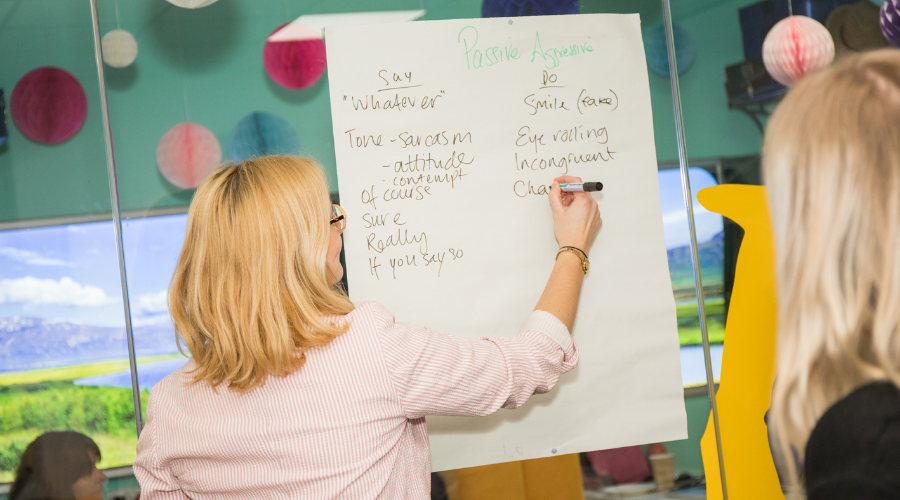 Passive Aggressive
Say
"Whatever"
Tone - sarcasm
- attitude
- contempt
Of course
Sure
Really
If you say so
Do
Smile (fake)
Eye rolling
Incongruent
Cha